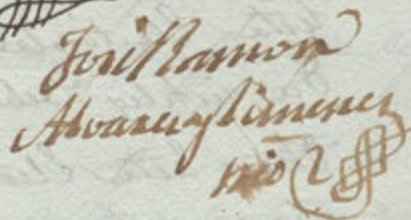 José Ramon
Alvarez y Ximenez